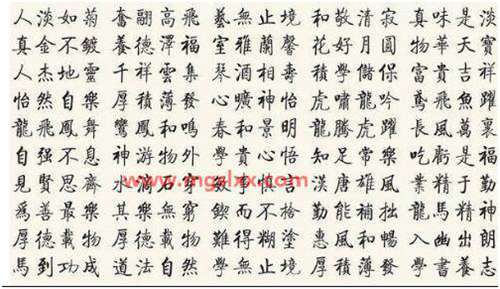 人淡如菊 奮翮高飛 藝無止境 和敬清寂 真味是淡
真金不鍍 養德澤福 室雅蘭馨 花好月圓 物華天寶
人杰地靈 千祥雲集 琴酒相壽 積學儲保 富貴吉祥
怡然自樂 厚積薄發 心曠神怡 虎嘯龍吟 鳶飛魚躍
龍飛鳳舞 鸞鳳和鳴 春和景明 龍騰虎躍 長風萬里
自强不息 神游物外 學貴心悟 知足常樂 吃虧是福
見賢思齊 水滴石穿 漢唐雄風 業精于勤
www.mgalxx.com
爲善最樂 其樂無窮 鍥而不捨 勤能補拙 龍馬精神
厚德載物 厚德載物 難得糊塗 惠風和暢 入幽出朗
馬到功成 道法自然 學無止境 厚積薄發 學書養志